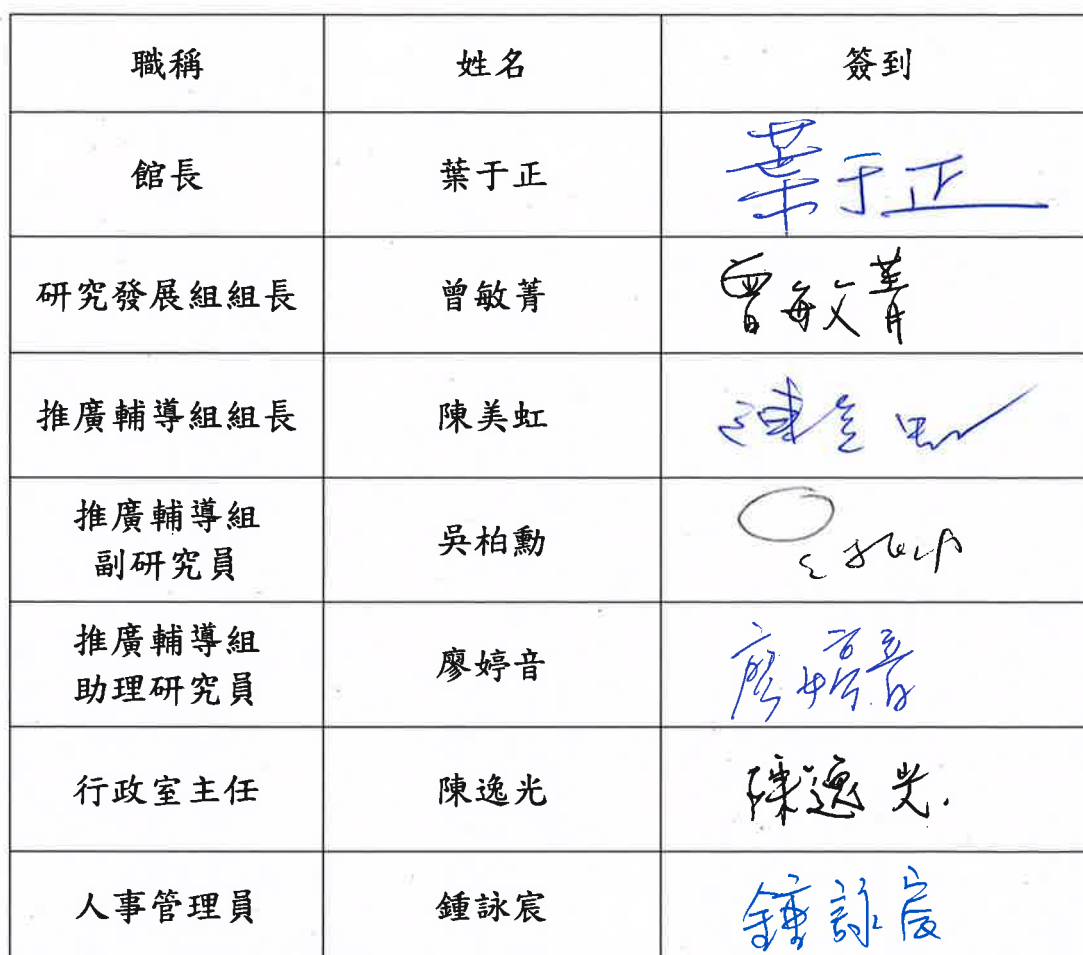 職稱 姓名 簽到
館長 葉于正 葉于正
研究發展組組長 曾敏菁 曾敏菁
推廣輔導組組長 陳美虹
推廣輔導組
副研究員 吳柏勳
推廣輔導組
助理研究員 廖婷音 廖婷音
行政室主任 陳逸光 陳逸光.
人事管理員 鍾詠宸 鍾詠宸